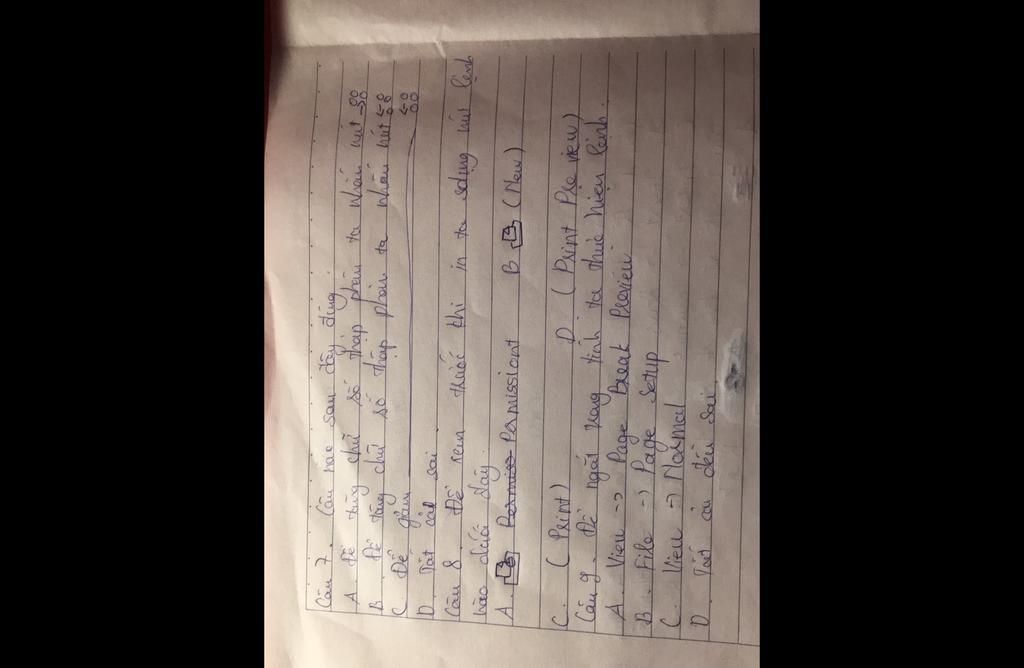 Câu 7. Câu nào sau đây đúng:
A. Để tăng chữ số thập phân ta nhấn nút
B. Để tăng chữ số thập phân ta nhấn nút
C. Để giảm
D. Tất cả sai.
Câu 8. Để xem trước khi in ta sdụng nút lệnh
nào dưới đây.
A. Permissiont B (New)
C. (Print) D (Print Pre view)
Câu 9. Để ngắt trang tính ta thực hiện lệnh.
A. View -> Page Break Preview
B. File -> Page Setup
C. View -> Normal
D. Tất cả đều sai